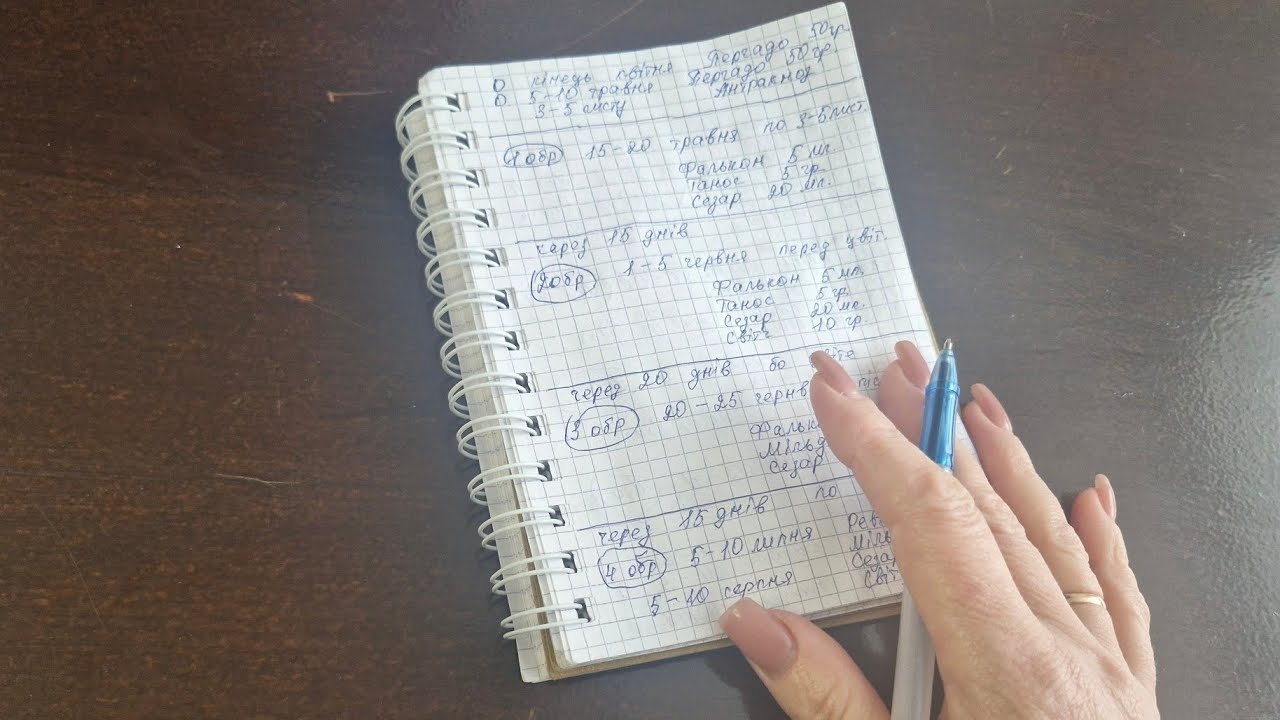 0 кінець квітня Пергадо 50гр.
0 5-10 травня Пергадо 50гр.
3-5 листу Антракнoз
1 обр 15-20 травня по 3-5 лист
Фалькон 5 мл.
Танос 5 гр.
Сезар 20 мл.
через 15 днів
2 обр 1-5 червня перед цвіт.
Фалькон 5 мл.
Танос 5 гр.
Сезар 20 мл.
Світч 10 гр
через 20 днів по
3 обр 20-25 червн
Фальк
Мільд
Сезар
через 15 днів по
4 обр 5-10 липня
Сезар
5-10 серпня Світ